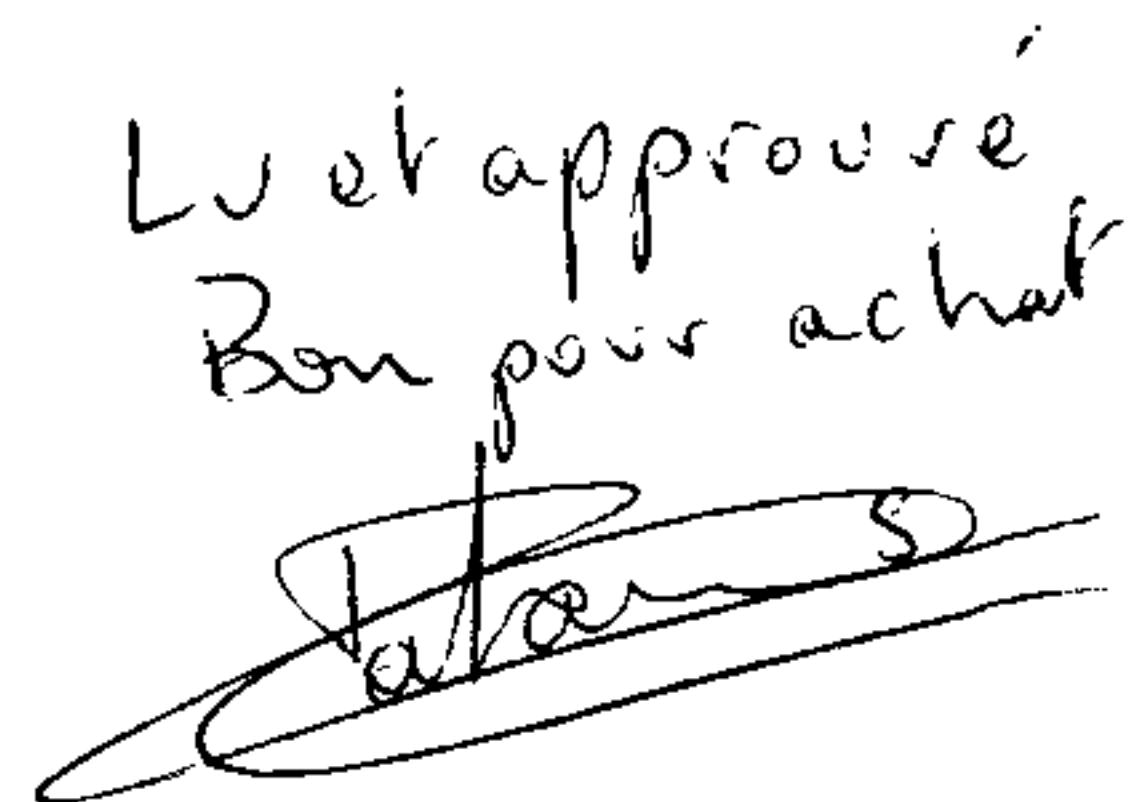 Lu et approuvé
Bon pour achat